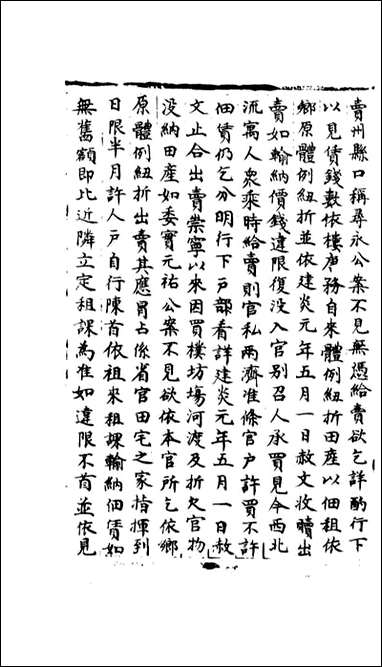 賣州縣口稱尋永公案不見無憑給賣欲乞詳酌行下
以見賃錢數依樓店務自來體例紐折田產以佃租依
鄉原體例紐折並依建炎元年五月一日赦文收贖出
賣如輸納價錢違限復没入官别召人承買見今西北
流寓人衆乘時給賣則官私兩濟准條官户許買不許
佃賃仍乞分明行下户部看詳建炎元年五月一日赦
文止合出賣崇寧以來因買樸坊場河渡及折欠官物
没納田產如委實元祐公案不見欲依本官所乞依鄉
原體例紐折出賣其應冒占係省官田宅之家指揮到
日限半月許人户自行陳首依祖來租課輸納佃賃如
無舊額即比近隣立定租課為准如違限不首並依見